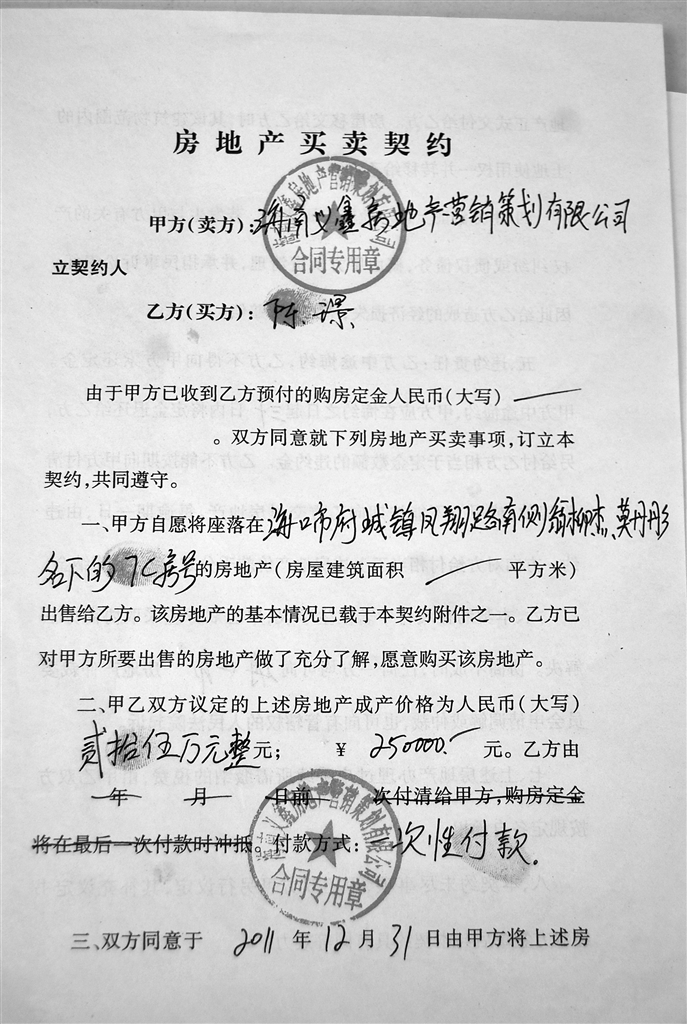 房地产买卖契约
甲方(卖方):海南义鑫房地产营销策划有限公司
立契约人
合同专用章
乙方(买方):陈璟
由于甲方已收到乙方预付的购房定金人民币(大写)
。双方同意就下列房地产买卖事项,订立本
契约,共同遵守。
一、甲方自愿将座落在海口市府城镇凤翔路南侧翁柳杰、莫丹彤
名下的7C房号的房地产(房屋建筑面积 平方米)
出售给乙方。该房地产的基本情况已载于本契约附件之一。乙方已
对甲方所要出售的房地产做了充分了解,愿意购买该房地产。
二、甲乙双方议定的上述房地产成产价格为人民币(大写)
贰拾伍万元整元; ¥ 250000.- 元。乙方由
年 月 日前 次付清给甲方,购房定金
将在最后一次付款时冲抵。付款方式:一次性付款.
海南义鑫房地产营销策划有限公司
合同专用章
三、双方同意于 2011 年 12 月 31 日由甲方将上述房